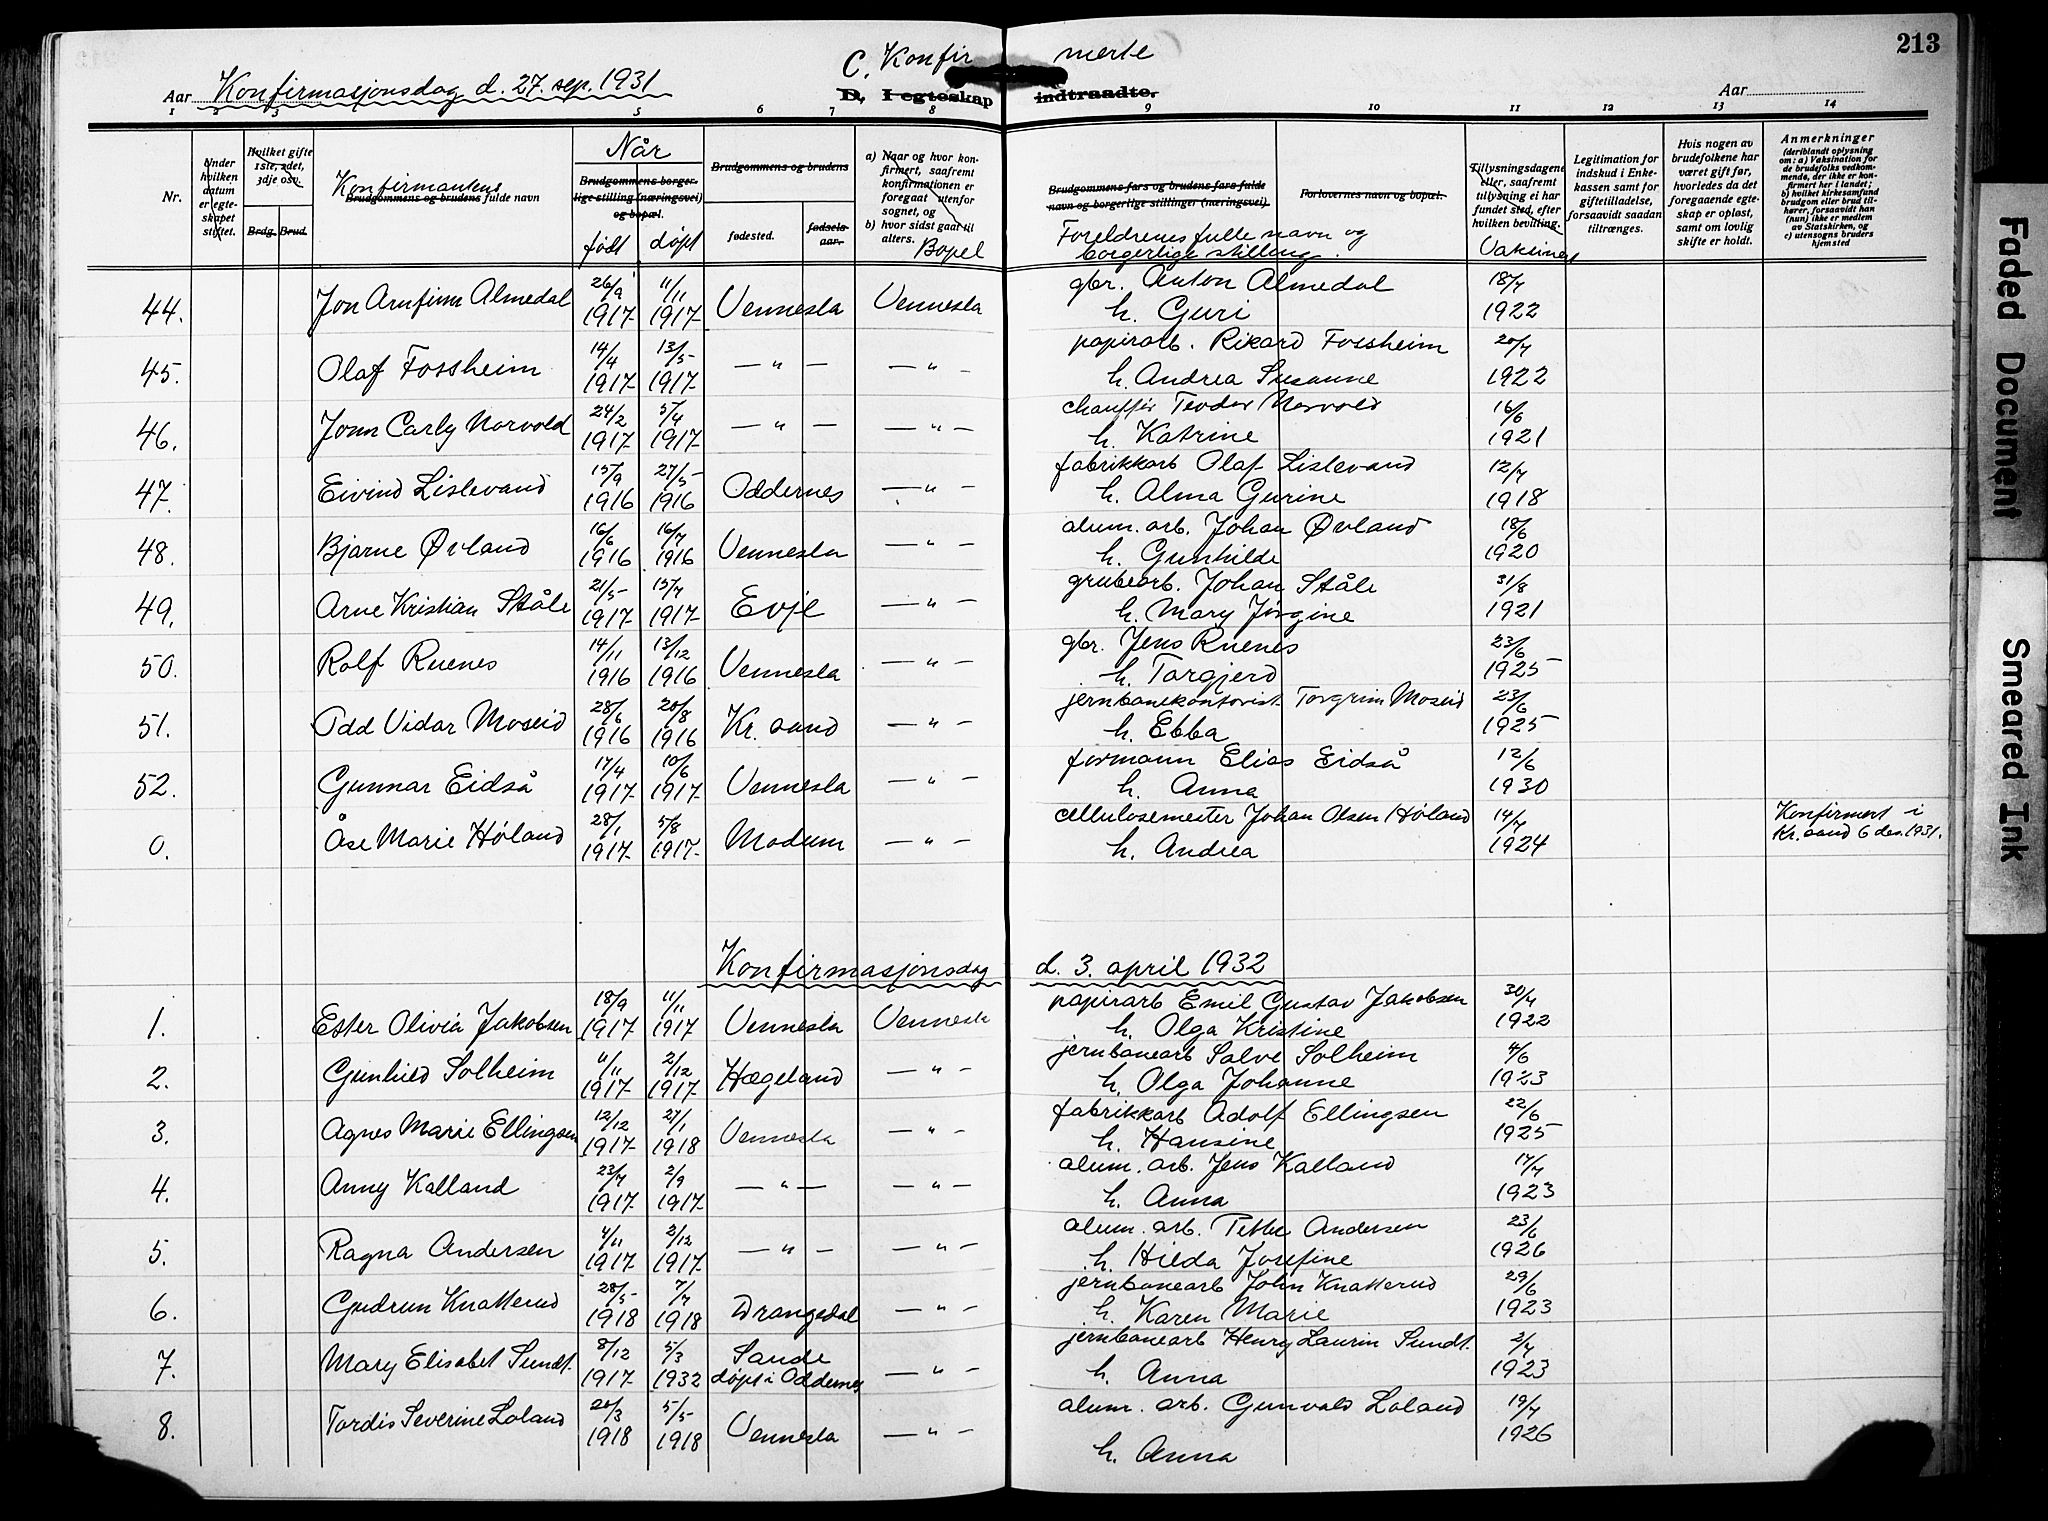 213
C. Konfirmerte
Konfirmasjonsdag d. 27. sep. 1931
Aar
D. I egteskap indtraadte.
Aar
1 2 3 5 6 7 8 9 10 11 12 13 14
Nr.
Under hvilken datum er egteskapet stiftet.
Hvilket gifte 1ste, 2det, 3dje osv.
Brdg. Brud.
Konfirmantens
Brudgommens og brudens fulde navn
Når
Brudgommens borgerlige stilling (næringsvei) og bopæl.
født døpt
Brudgommens og brudens
fødested. fødselsaar.
a) Naar og hvor konfirmert, saafremt konfirmationen er foregaat utenfor sognet, og
b) hvor sidst gaat til alters.
Bopel
Brudgommens fars og brudens fars fulde navn og borgerlige stillinger (næringsvei).
Foreldrenes fulle navn og borgerlige stilling.
Forlovernes navn og bopæl.
Tillysningsdagene eller, saafremt tillysning ei har fundet sted, efter hvilken bevilling.
Vaksinert
Legitimation for indskud i Enkekassen samt for giftetilladelse, forsaavidt saadan tiltrænges.
Hvis nogen av brudefolkene har været gift før, hvorledes da det foregaaende egteskap er opløst, samt om lovlig skifte er holdt.
Anmerkninger
(deriblandt oplysning om: a) Vaksination for de brudefolks vedkommende, der ikke er konfirmert her i landet; b) hvilket kirkesamfund brudgom eller brud tilhører, forsaavidt han (hun) ikke er medlem av Statskirken, og c) utensogns bruders hjemsted
44. Jon Arnfinn Almedal 26/9 1917 11/11 1917 Vennesla Vennesla gbr. Anton Almedal h. Guri 18/7 1922
45. Olaf Fossheim 14/4 1917 13/5 1917 — " — — " — papirarb. Rikard Fossheim h. Andrea Susanne 20/7 1922
46. Jonn Carly Norvold 24/2 1917 5/4 1917 — " — — " — chauffør Teodor Norvold h. Katrine 16/6 1921
47. Eivind Lislevand 15/9 1916 27/5 1916 Oddernes — " — fabrikkarb Olaf Lislevand h. Alma Gurine 12/7 1918
48. Bjarne Øvland 16/6 1916 16/7 1916 Vennesla — " — alum. arb. Johan Øvland h. Gunhilde 18/6 1920
49. Arne Kristian Ståle 21/5 1917 15/7 1917 Evje — " — grubearb. Johan Ståle h. Mary Jørgine 31/8 1921
50. Rolf Ruenes 14/11 1916 13/12 1916 Vennesla — " — gbr. Jens Ruenes h. Torgjerd 23/6 1925
51. Odd Vidar Moseid 28/6 1916 20/8 1916 Kr. sand — " — jernbanekontorist Torgrim Moseid h. Ebba 23/6 1925
52. Gunnar Eidså 17/4 1917 10/6 1917 Vennesla — " — formann Elias Eidså h. Anna 12/6 1930
0. Åse Marie Høland 28/1 1917 5/8 1917 Modum — " — cellulosemester Johan Olsen Høland h. Andrea 14/7 1924 Konfirmert i Kr. sand 6 des. 1931.
Konfirmasjonsdag d. 3. april 1932
1. Ester Olivia Jakobsen 18/9 1917 11/11 1917 Vennesla Vennesla papirarb Emil Gustav Jakobsen h. Olga Kristine 30/7 1922
2. Gunhild Solheim 11/11 1917 2/12 1917 Hægeland — " — jernbanearb Salve Solheim h. Olga Johanne 4/6 1923
3. Agnes Marie Ellingsen 12/12 1917 27/1 1918 Vennesla — " — fabrikkarb Adolf Ellingsen h. Hansine 22/6 1925
4. Anny Kalland 23/7 1917 2/9 1917 — " — — " — alum. arb. Jens Kalland h. Anna 17/7 1923
5. Ragna Andersen 4/11 1917 2/12 1917 — " — — " — alum. arb. Petter Andersen h. Hilda Josefine 23/6 1926
6. Gudrun Knatterud 28/5 1918 7/7 1918 Drangedal — " — jernbanearb John Knatterud h. Karen Marie 29/6 1923
7. Mary Elisabet Sundt. 8/12 1917 5/3 1932 Sande døpt i Oddernes — " — jernbanearb Henry Laurin Sundt. h. Anna 2/7 1923
8. Tordis Severine Loland 20/3 1918 5/5 1918 Vennesla — " — alum. arb. Gunvald Loland h. Anna 19/7 1926
Faded Document
Smeared Ink